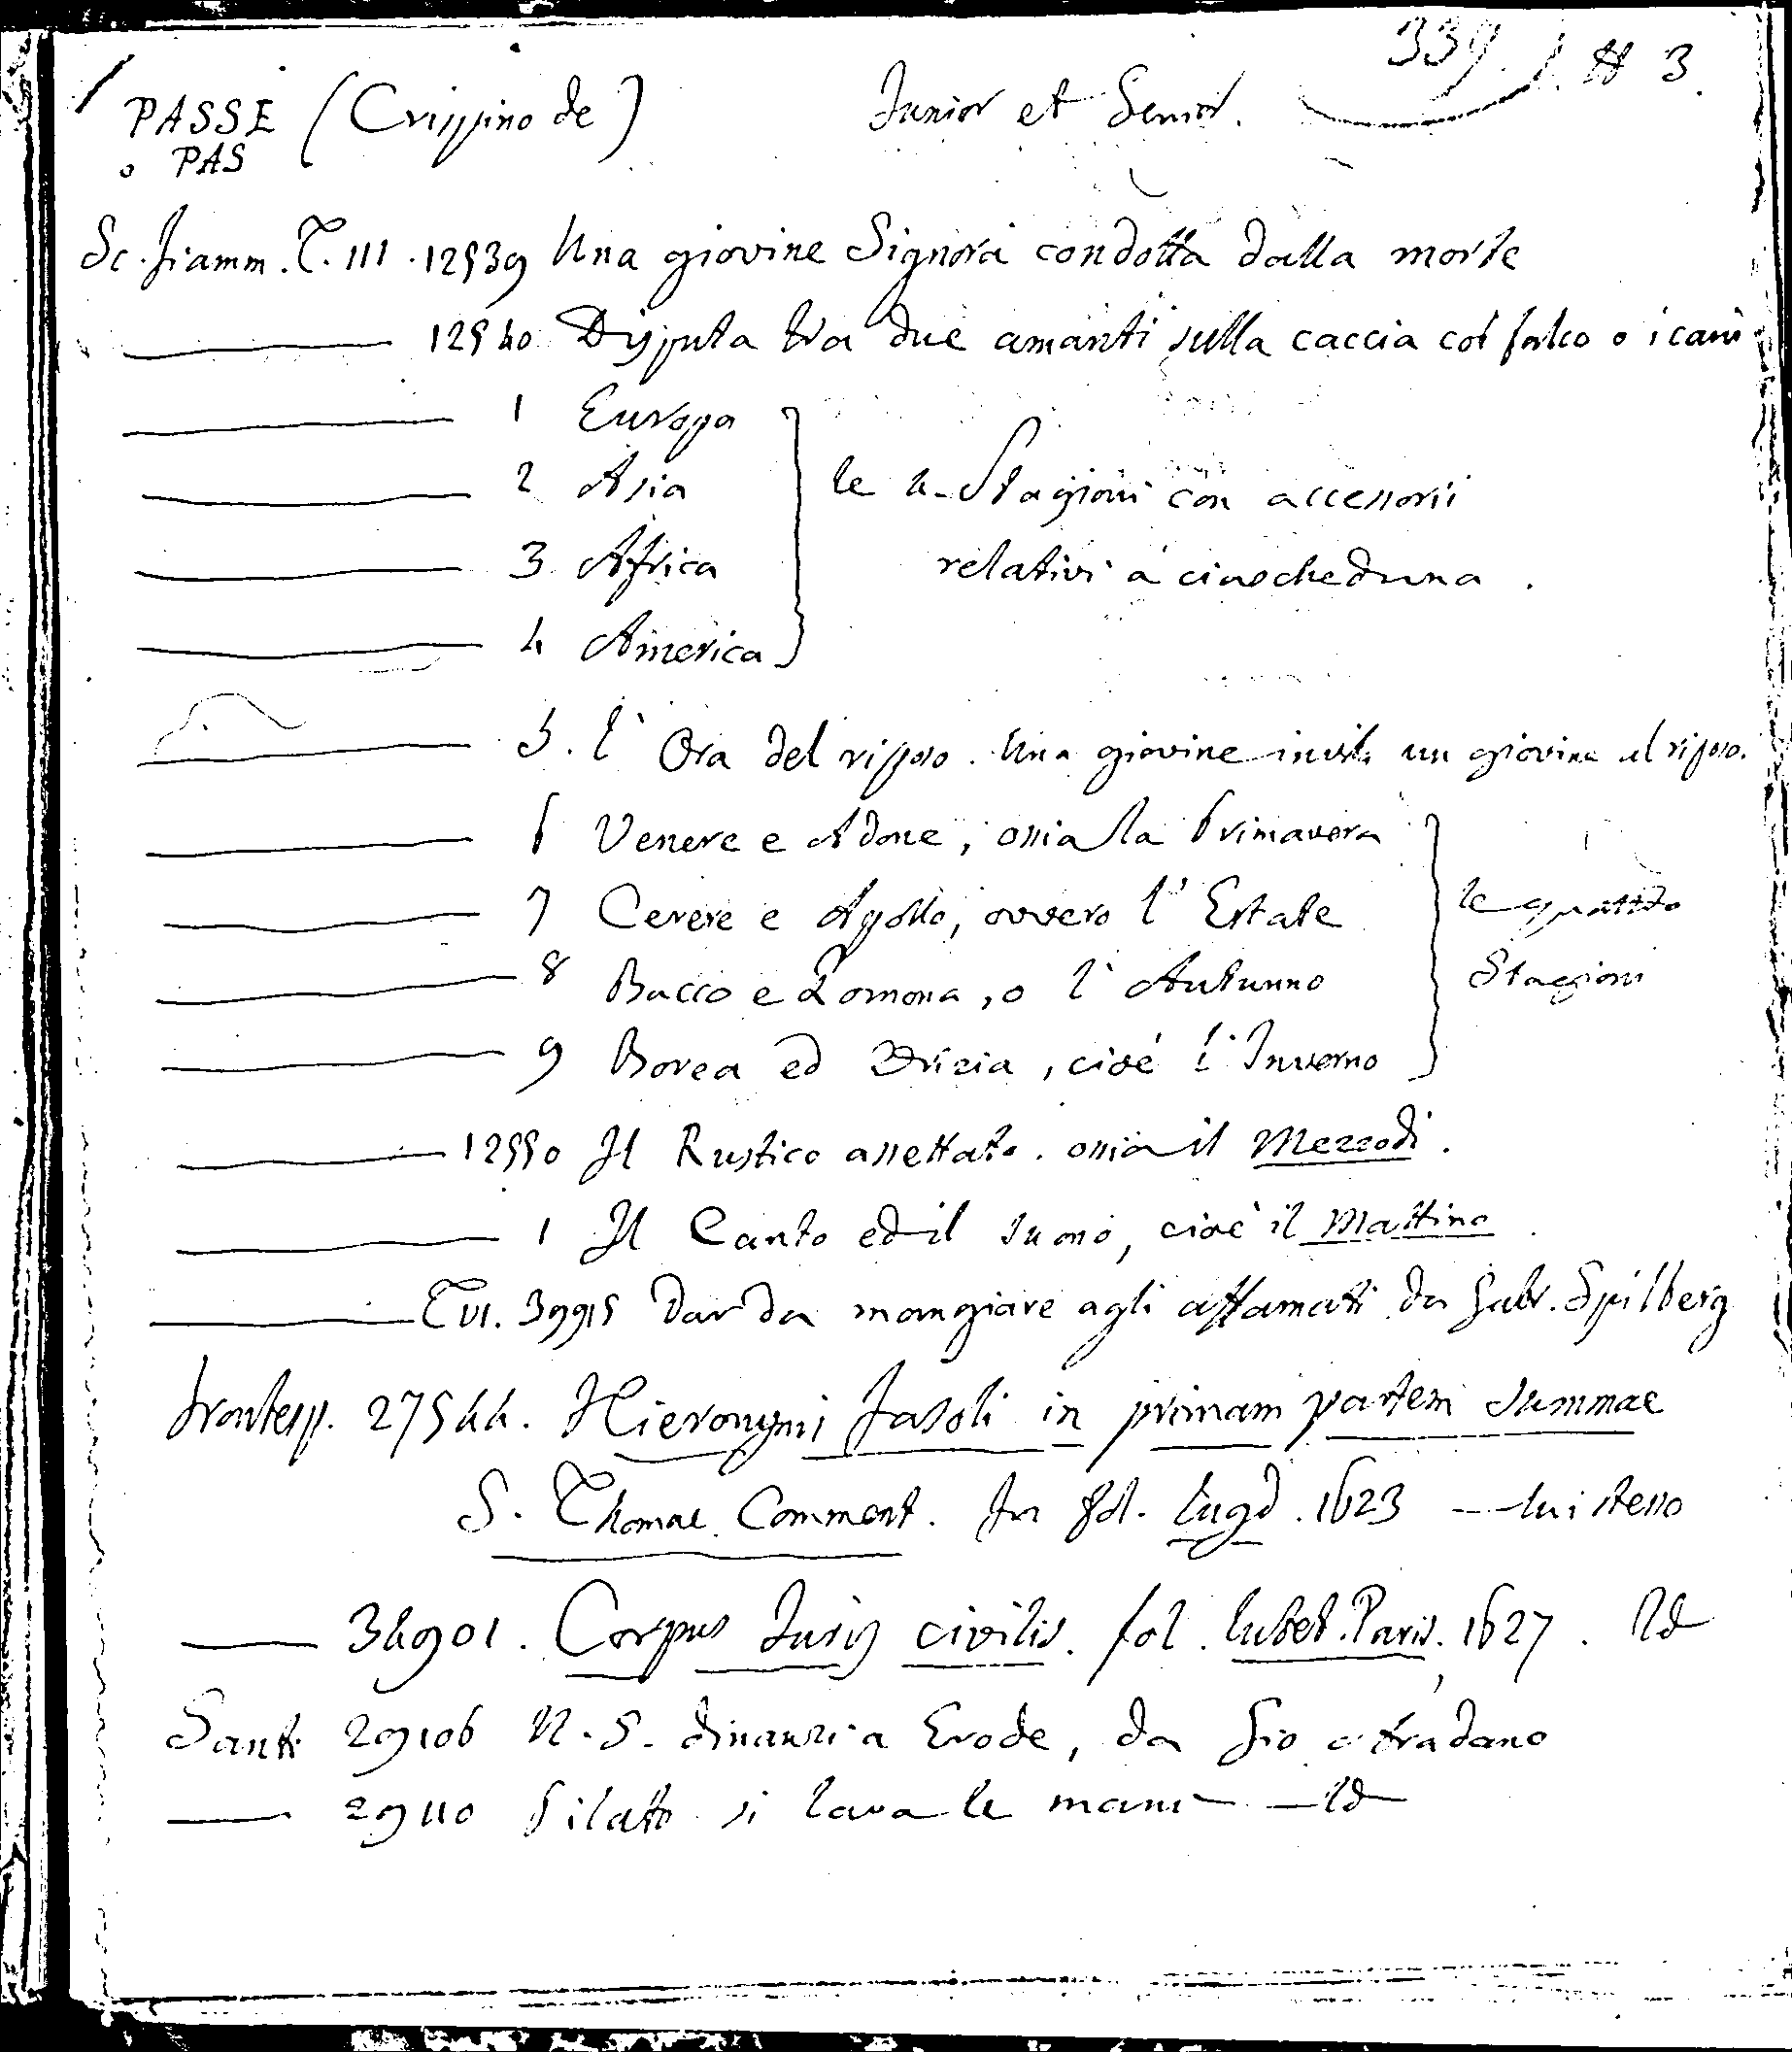 339. # 3.
PASSE (Crispino de) Junior et Senior.
o PAS
Sc. fiamm. T. III. 12539 Una giovine Signora condotta dalla morte
12540 Disputa tra due amanti sulla caccia col falco o i cani
1 Europa
2 Asia le 4 Stagioni con accessorii
3 Africa relativi a ciascheduna.
4 America
5. l'Ora del risposo. Una giovine invita un giovine al riposo.
6 Venere e Adone, ossia la Primavera
7 Cerere e Apollo, ovvero l'Estate le quattro
8 Bacco e Pomona, o l'Autunno Stagioni
9 Borea ed Orizia, cioé l'Inverno
12550 Il Rustico assettato. ossia il Mezzodi.
1 Il Canto ed il suono, cioè il Mattino.
T VI. 39915 Dar da mangiare agli affamati da Gabr. Spilberg
frontesp. 27544. Hieronymi Fasoli in primam partem Summae
S. Thomae Comment. In fol. Lugd. 1623 — lui stesso
34901. Corpus Juris civilis. fol. Lutet. Paris. 1627. Id
Santi 29106 N. S. dinanzi a Erode, da Gio Stradano
29110 Pilato si lava le mani — Id